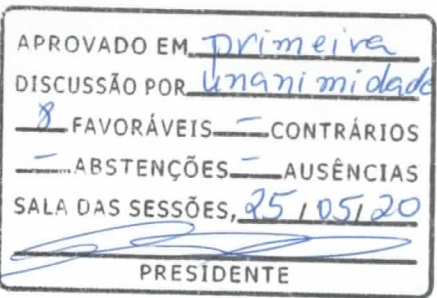 APROVADO EM primeira
DISCUSSÃO POR unanimidade
8 FAVORÁVEIS - CONTRÁRIOS
- ABSTENÇÕES - AUSÊNCIAS
SALA DAS SESSÕES, 25/05/20
PRESIDENTE